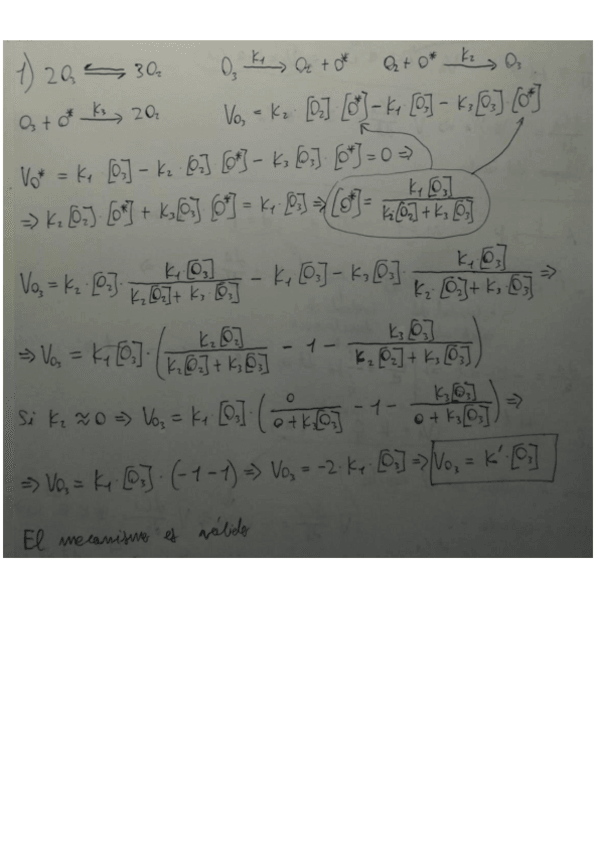 1) 2O₃ ⇌ 3O₂   O₃ —K₁→ O₂ + O*   O₂ + O* —K₂→ O₃
O₃ + O* —K₃→ 2O₂   V_O₃ = K₂ · [O₂] [O*] − K₁ [O₃] − K₃ [O₃] · [O*]
V_O* = K₁ [O₃] − K₂ · [O₂] [O*] − K₃ [O₃] · [O*] = 0 ⇒
⇒ K₂ [O₂] · [O*] + K₃ [O₃] [O*] = K₁ · [O₃] ⇒ [O*] = K₁ [O₃] / (K₂ [O₂] + K₃ [O₃])
V_O₃ = K₂ · [O₂] · K₁ [O₃] / (K₂ [O₂] + K₃ · [O₃]) − K₁ [O₃] − K₃ [O₃] · K₁ [O₃] / (K₂ · [O₂] + K₃ · [O₃]) ⇒
⇒ V_O₃ = K₁ [O₃] · (K₂ [O₂] / (K₂ [O₂] + K₃ [O₃]) − 1 − K₃ [O₃] / (K₂ [O₂] + K₃ [O₃]))
Si K₂ ≈ 0 ⇒ V_O₃ = K₁ · [O₃] · (0 / (0 + K₃ [O₃]) − 1 − K₃ [O₃] / (0 + K₃ [O₃])) ⇒
⇒ V_O₃ = K₁ · [O₃] · (−1 − 1) ⇒ V_O₃ = −2 · K₁ · [O₃] ⇒ V_O₃ = K' · [O₃]
El mecanismo es válido